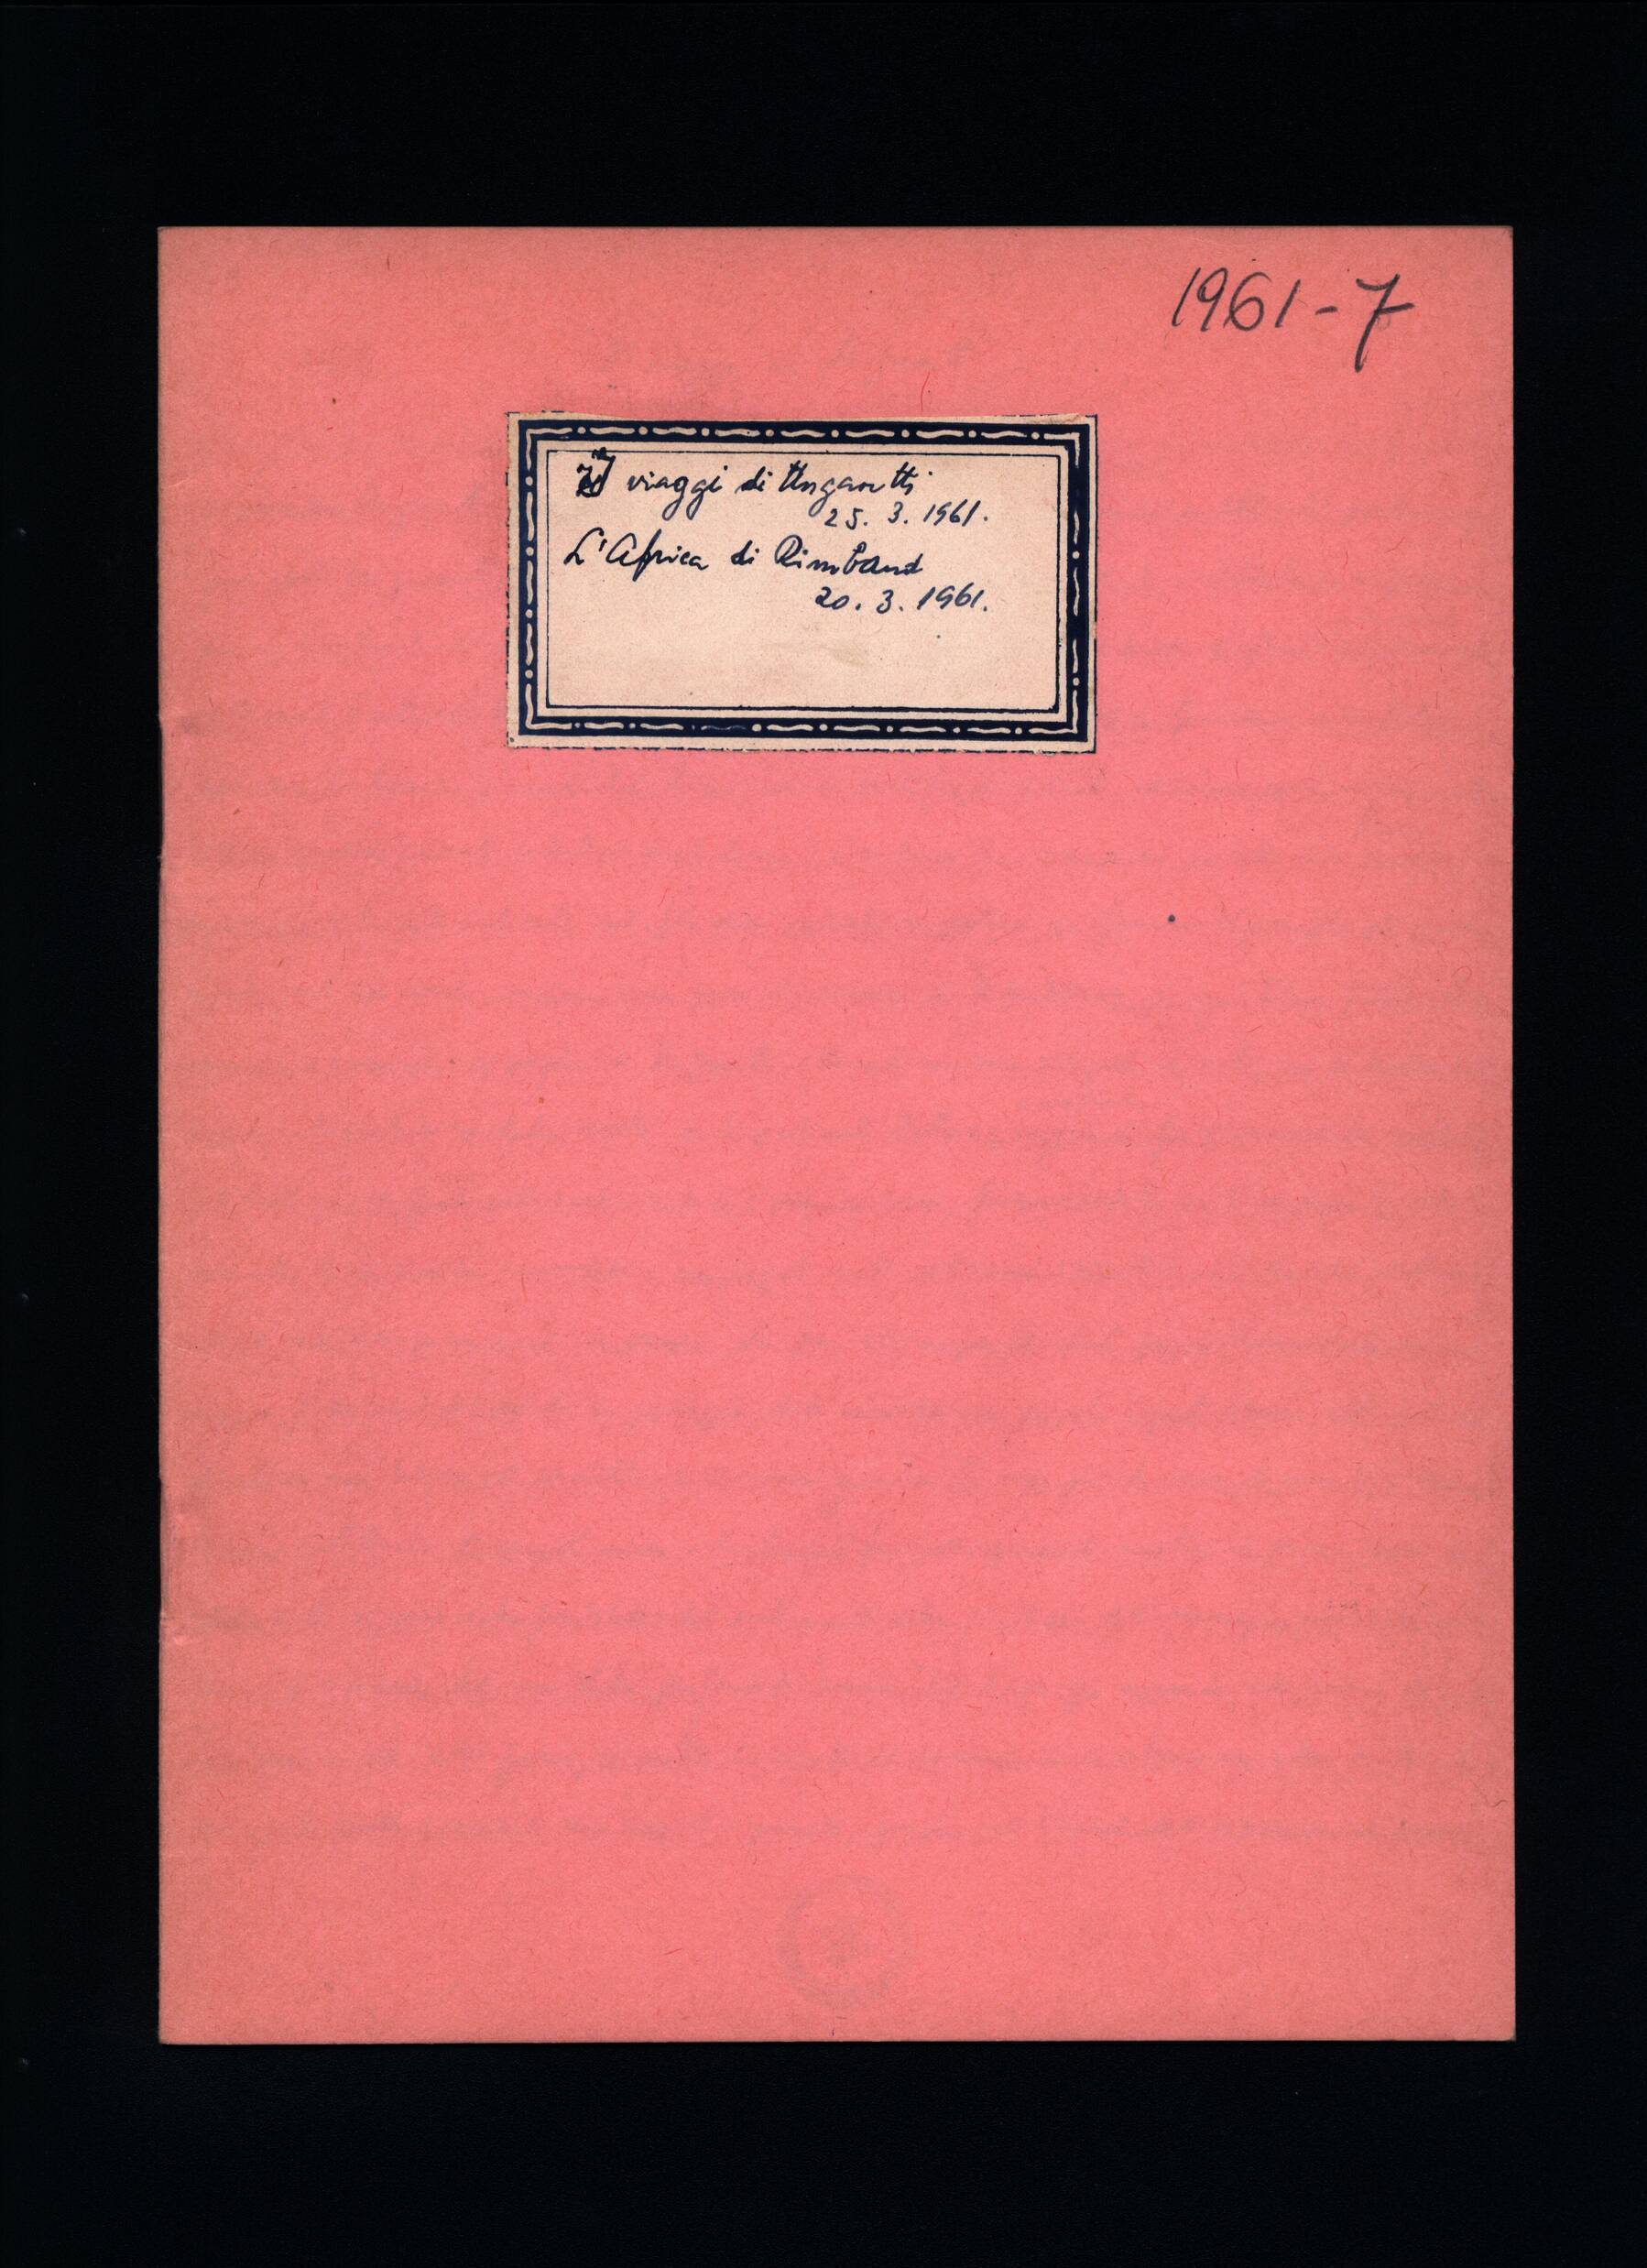 1961-7
I viaggi di Ungaretti
25. 3. 1961.
L'Africa di Rimbaud
20. 3. 1961.